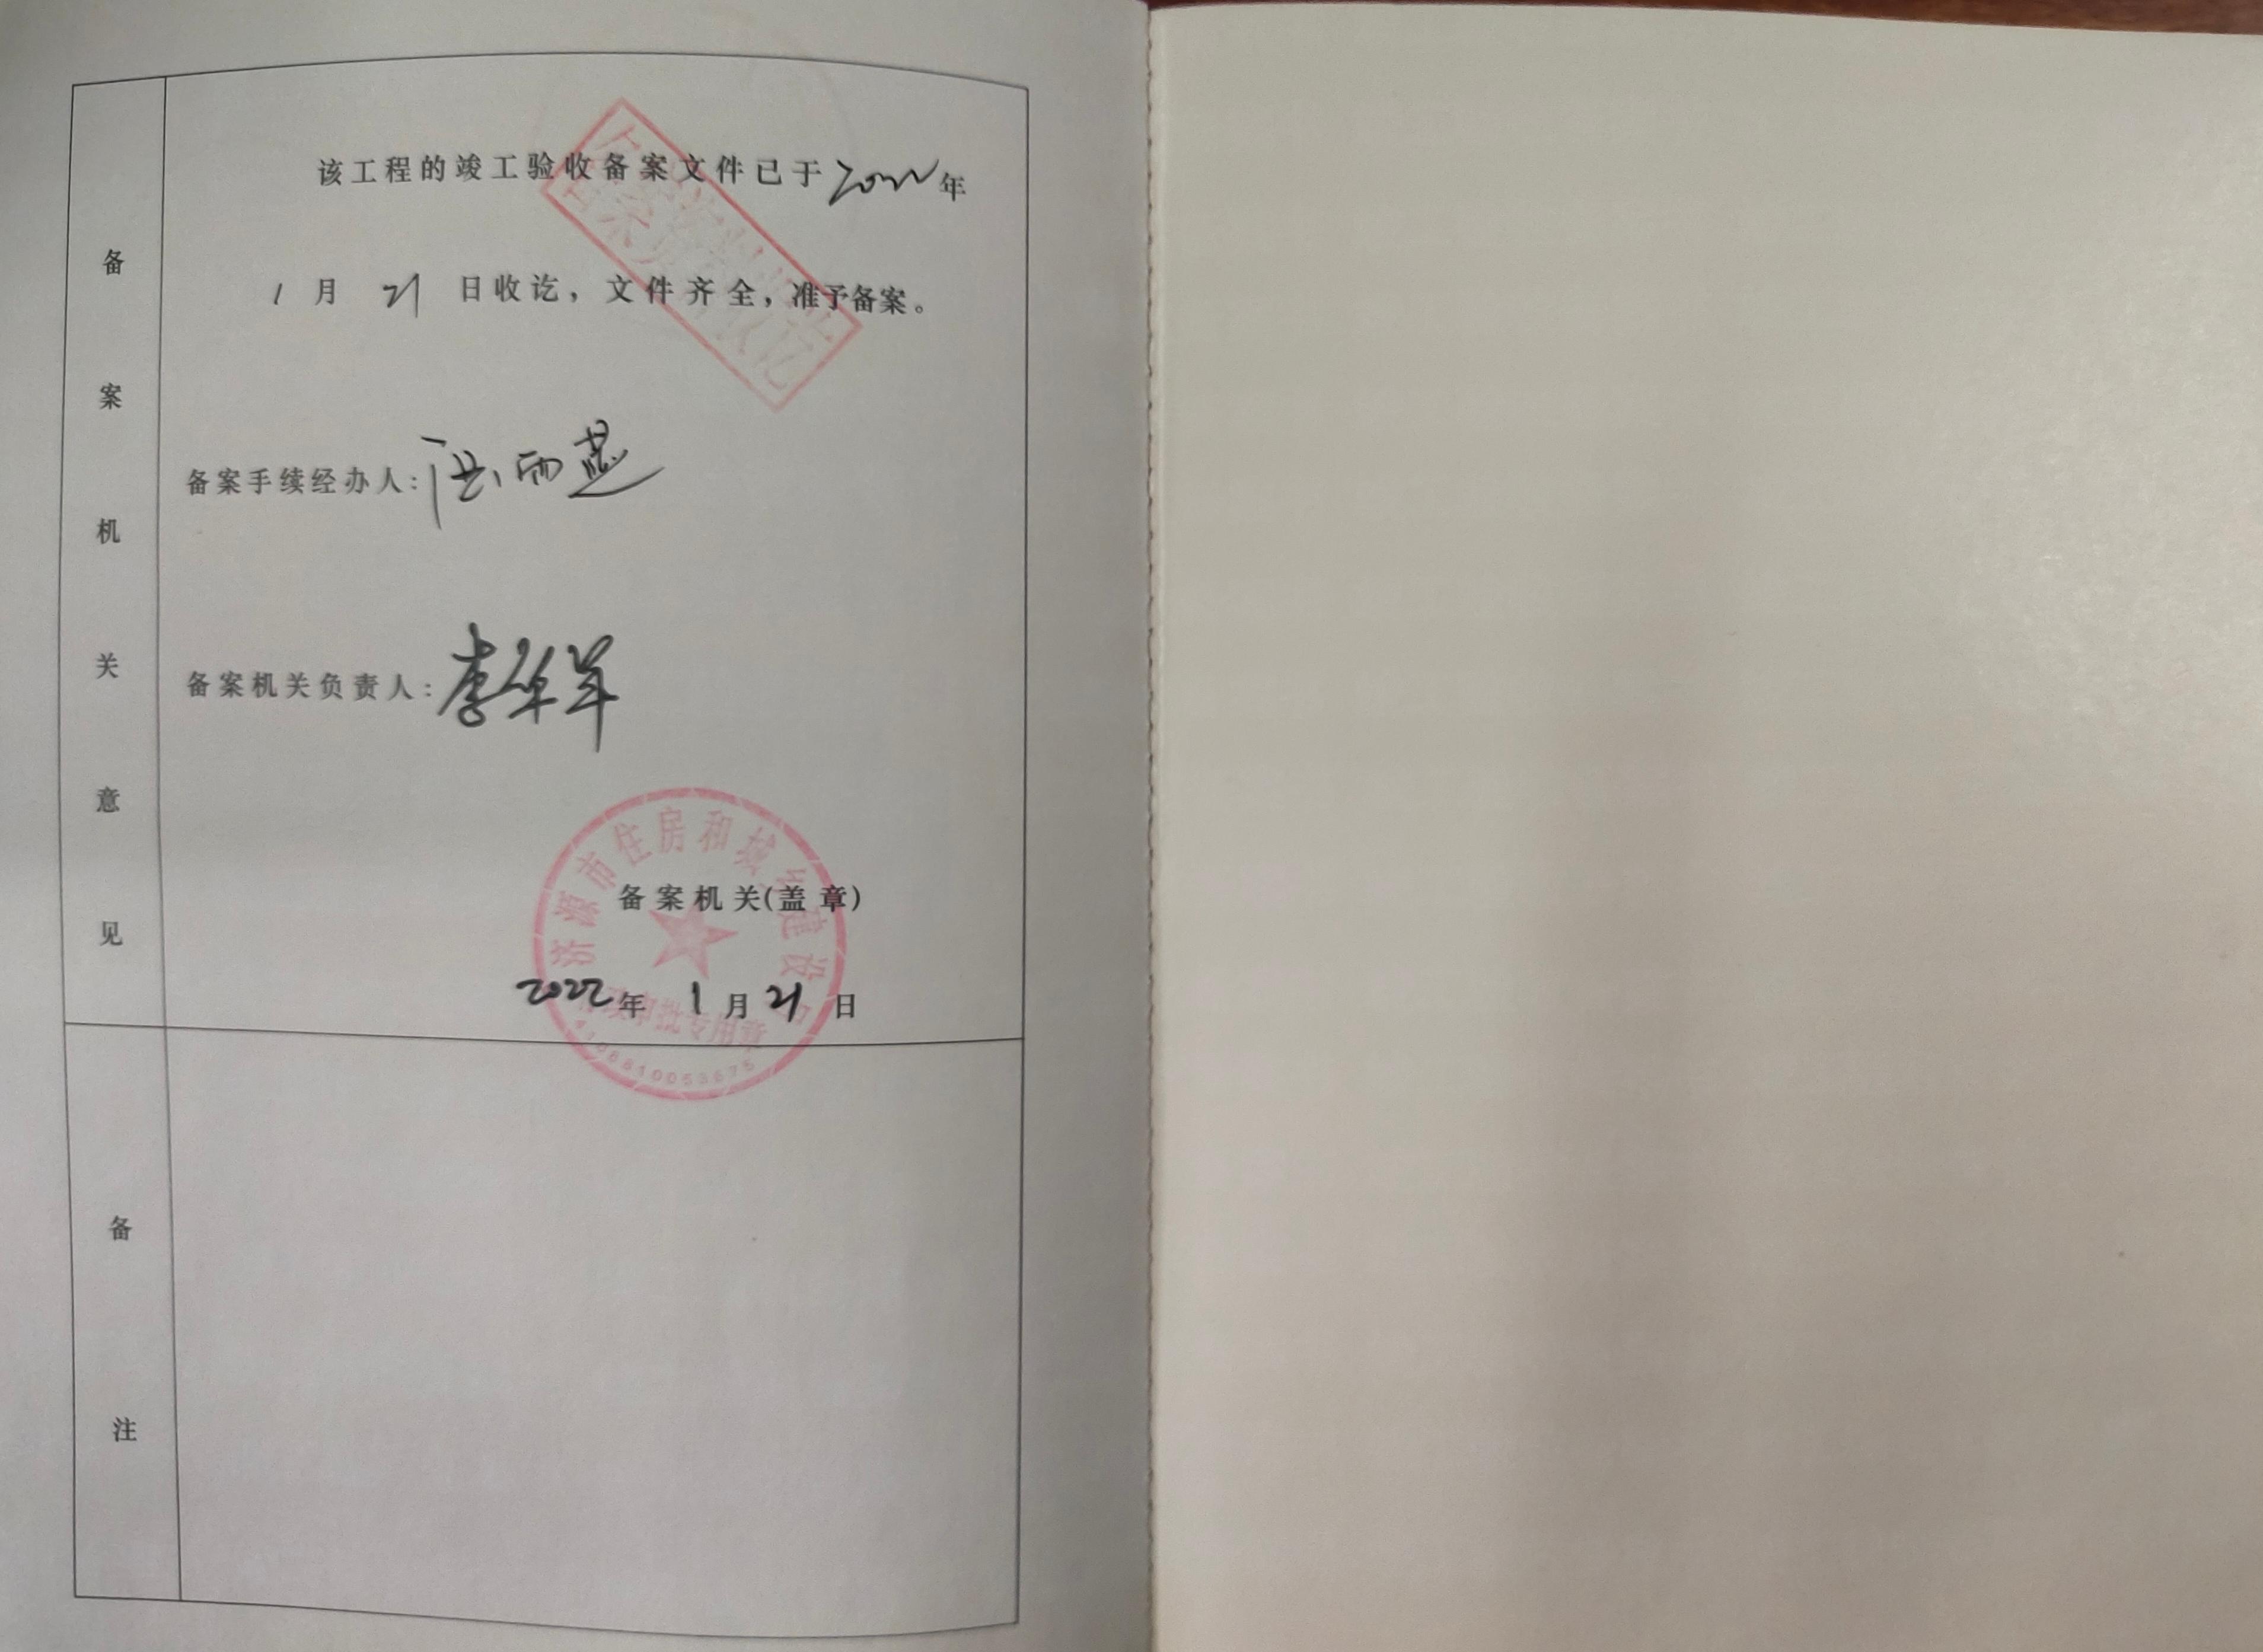 备案机关意见
该工程的竣工验收备案文件已于2022年
1月21日收讫，文件齐全，准予备案。
备案手续经办人：
备案机关负责人：李
济源市住房和城乡建设局
备案机关(盖章)
2022年1月21日
行政审批专用章
备注